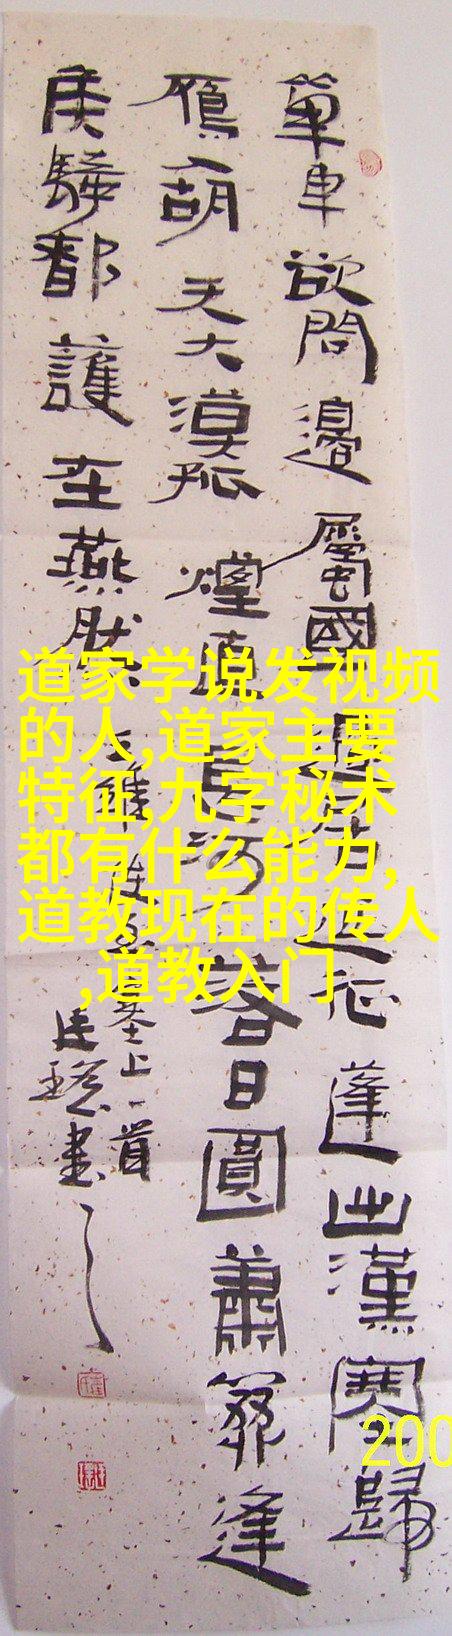 單車欲問邊屬國過居延征蓬出漢塞歸
鴈入胡天大漠孤煙直長河落日圓蕭關逢
候騎都護在燕然
王維使至塞上一首
書
道家学说发视频
的人,道家主要
特征,九字秘术
都有什么能力,
道教现在的传人
,道教入门
200